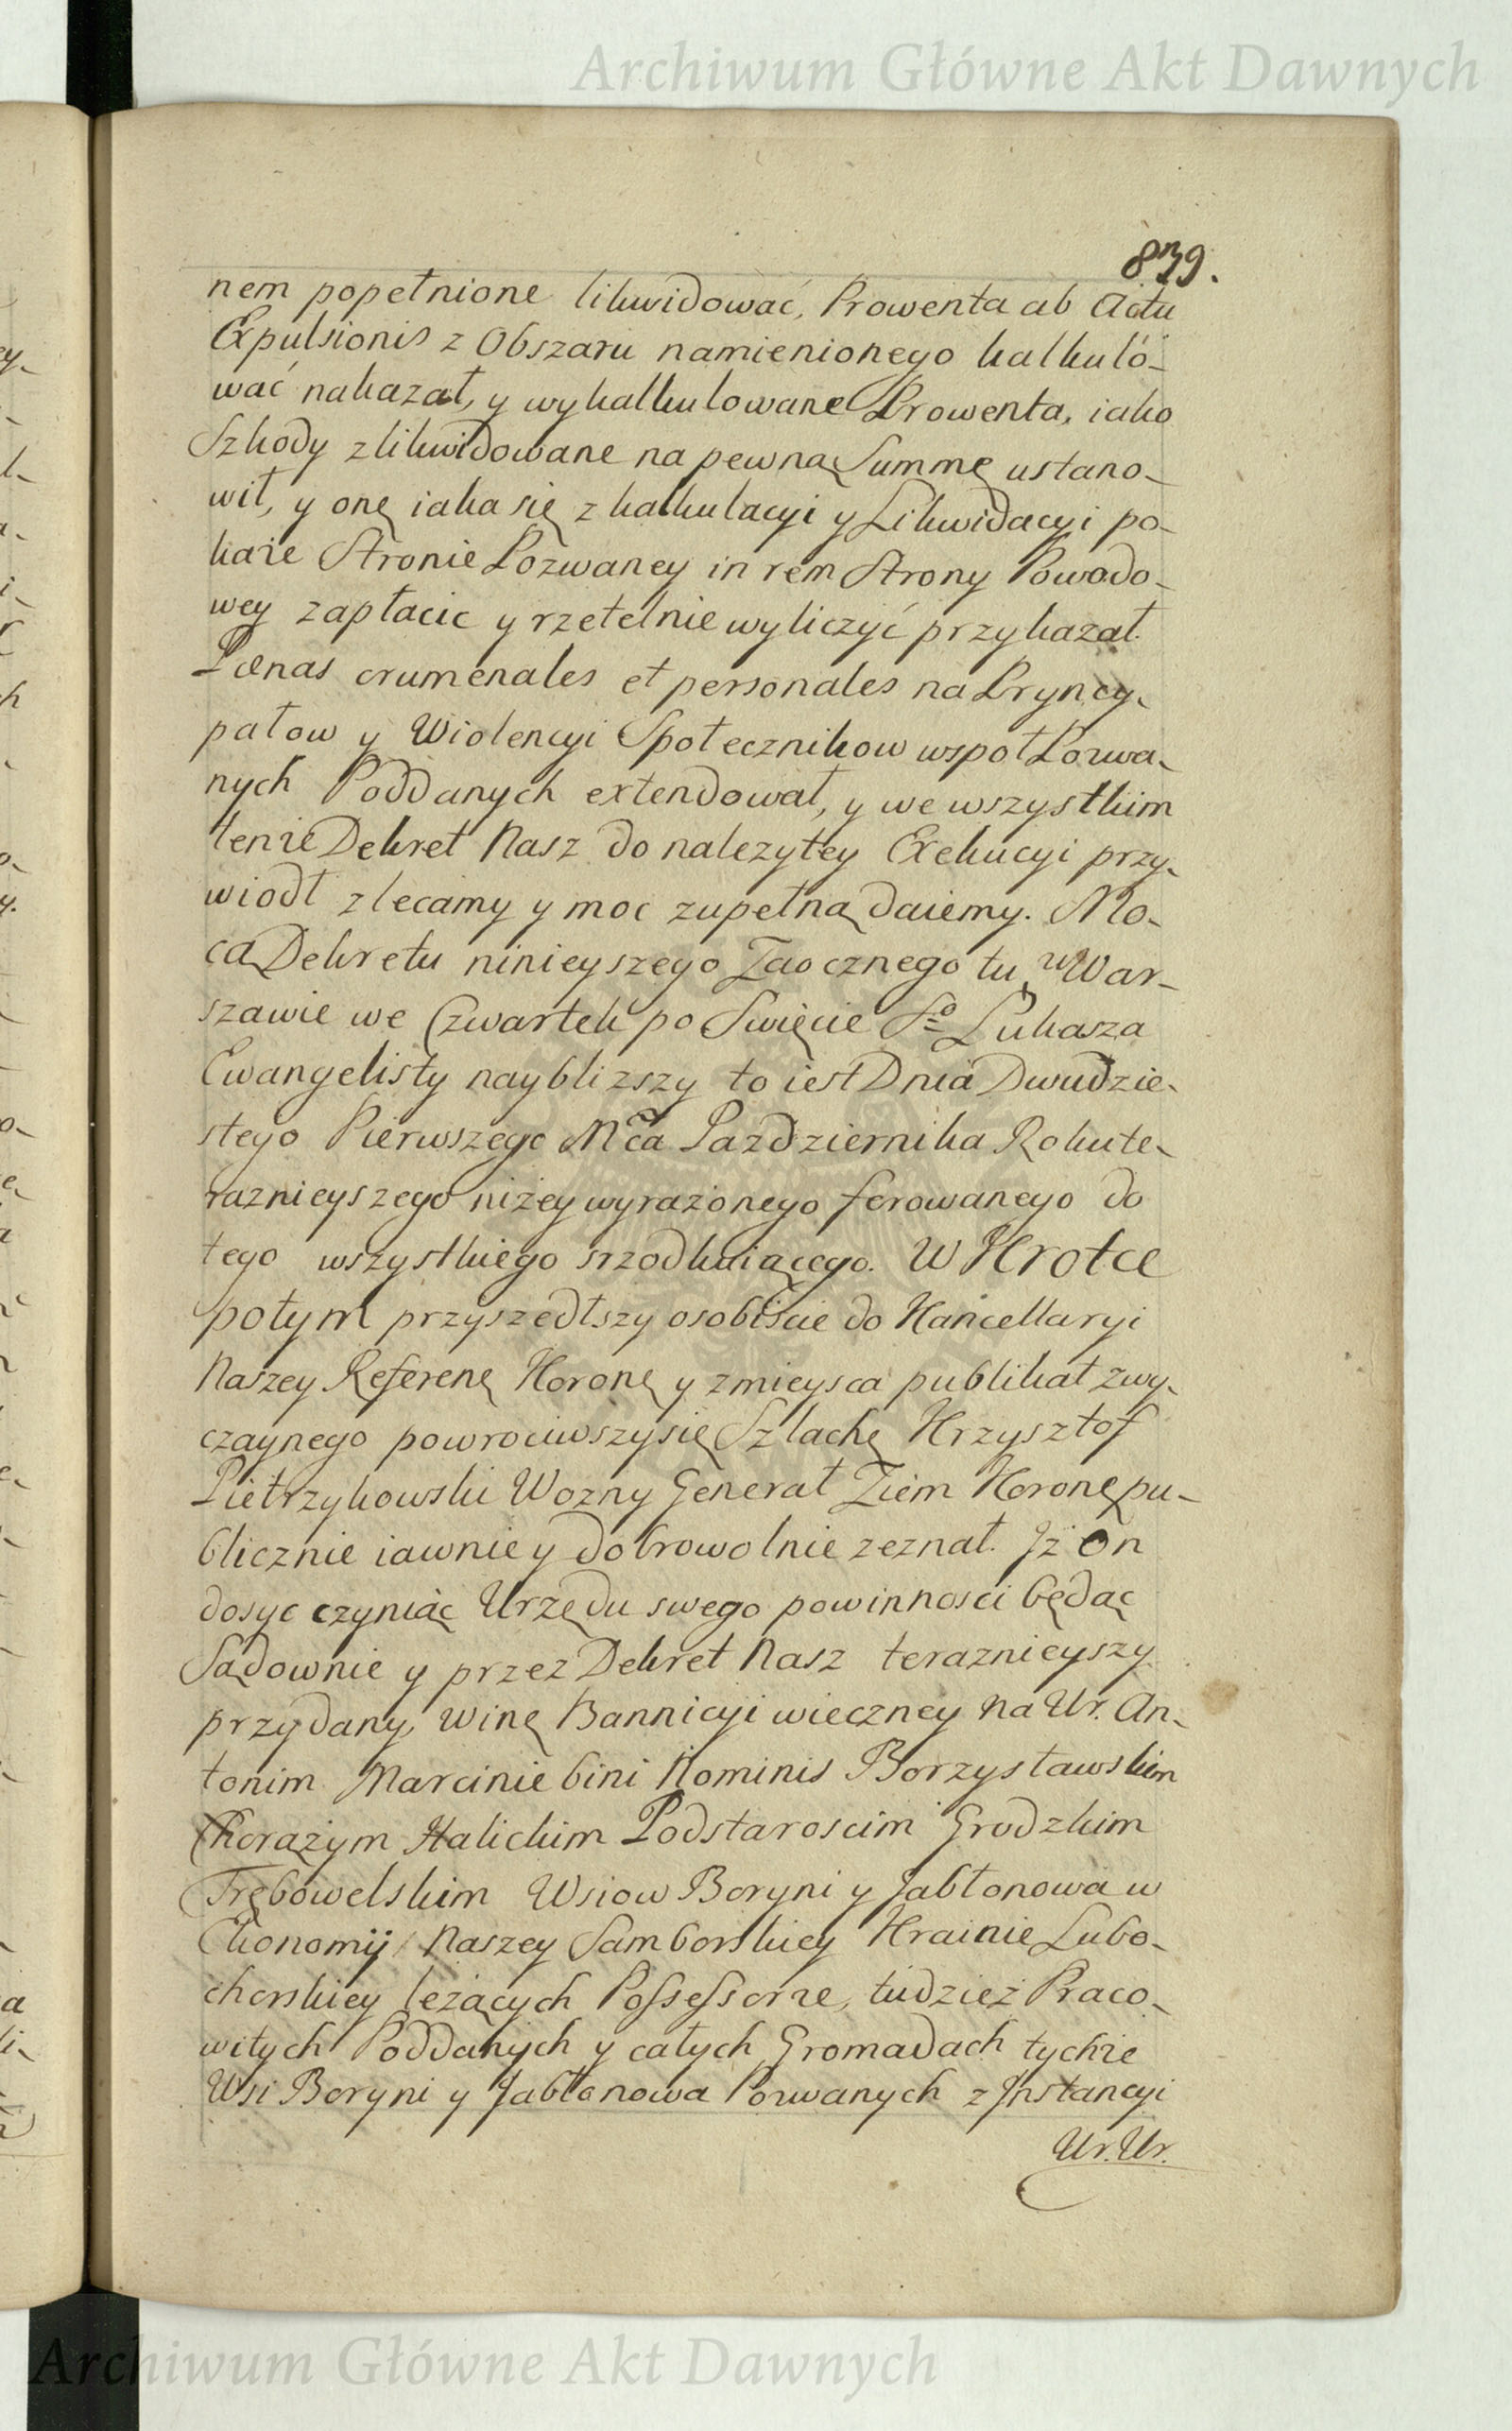 Archiwum Główne Akt Dawnych
839.
nem popełnione likwidować, Prowenta ab Actu
Expulsionis z Obszaru namienionego kalkulo-
wać nakazał, y wykalkulowane Prowenta, iako
Szkody zlikwidowane na pewną Summę ustano-
wił, y onę iaka się z kalkulacyi y Likwidacyi po-
każe Stronie Pozwaney in rem Strony Powodo-
wey zapłacic y rzetelnie wyliczyć przykazał.
Pœnas crumenales et personales na Pryncy-
pałow y Wiolencyi Społecznikow wspoł Pozwa-
nych Poddanych extendował, y we wszystkim
tenże Dekret Nasz do nalezytey Exekucyi przy-
wiodł zlecamy y moc zupełną daiemy. Mo-
cą Dekretu ninieyszego Zaocznego tu w War-
szawie we Czwartek po Swięcie So Łukasza
Ewangelisty nayblizszy to iest Dnia Dwudzie-
stego Pierwszego Mca Pazdziernika Roku te-
raznieyszego niżey wyrażonego ferowanego do
tego wszystkiego srzodkuiącego. W Krotce
potym przyszedłszy osobiście do Kancellaryi
Naszey Referenę Koronę y zmieysca publikat zwy-
czaynego powrociwszy się Szlachę Krzysztof
Pietrzykowski Wozny Generał Ziem Koronę pu-
blicznie iawnie y dobrowolnie zeznał. Jż On
dosyc czyniąc Urzędu swego powinnosci będąc
Sądownie y przez Dekret Nasz teraznieyszy
przydany, winę Bannicyi wieczney na Ur. An-
tonim Marcinie bini Nominis Borzysławskim
Chorążym Halickim Podstaroscim Grodzkim
Trębowelskim Wsiow Boryni y Jabłonowa w
Ekonomij Naszey Samborskiey Krainie Lubo-
chorskiey leżących Possessorze, tudzież Praco-
witych Poddanych y całych Gromadach tychże
Wsi Boryni y Jabłonowa Pozwanych z Jnstancyi
Ur. Ur.
Archiwum Główne Akt Dawnych